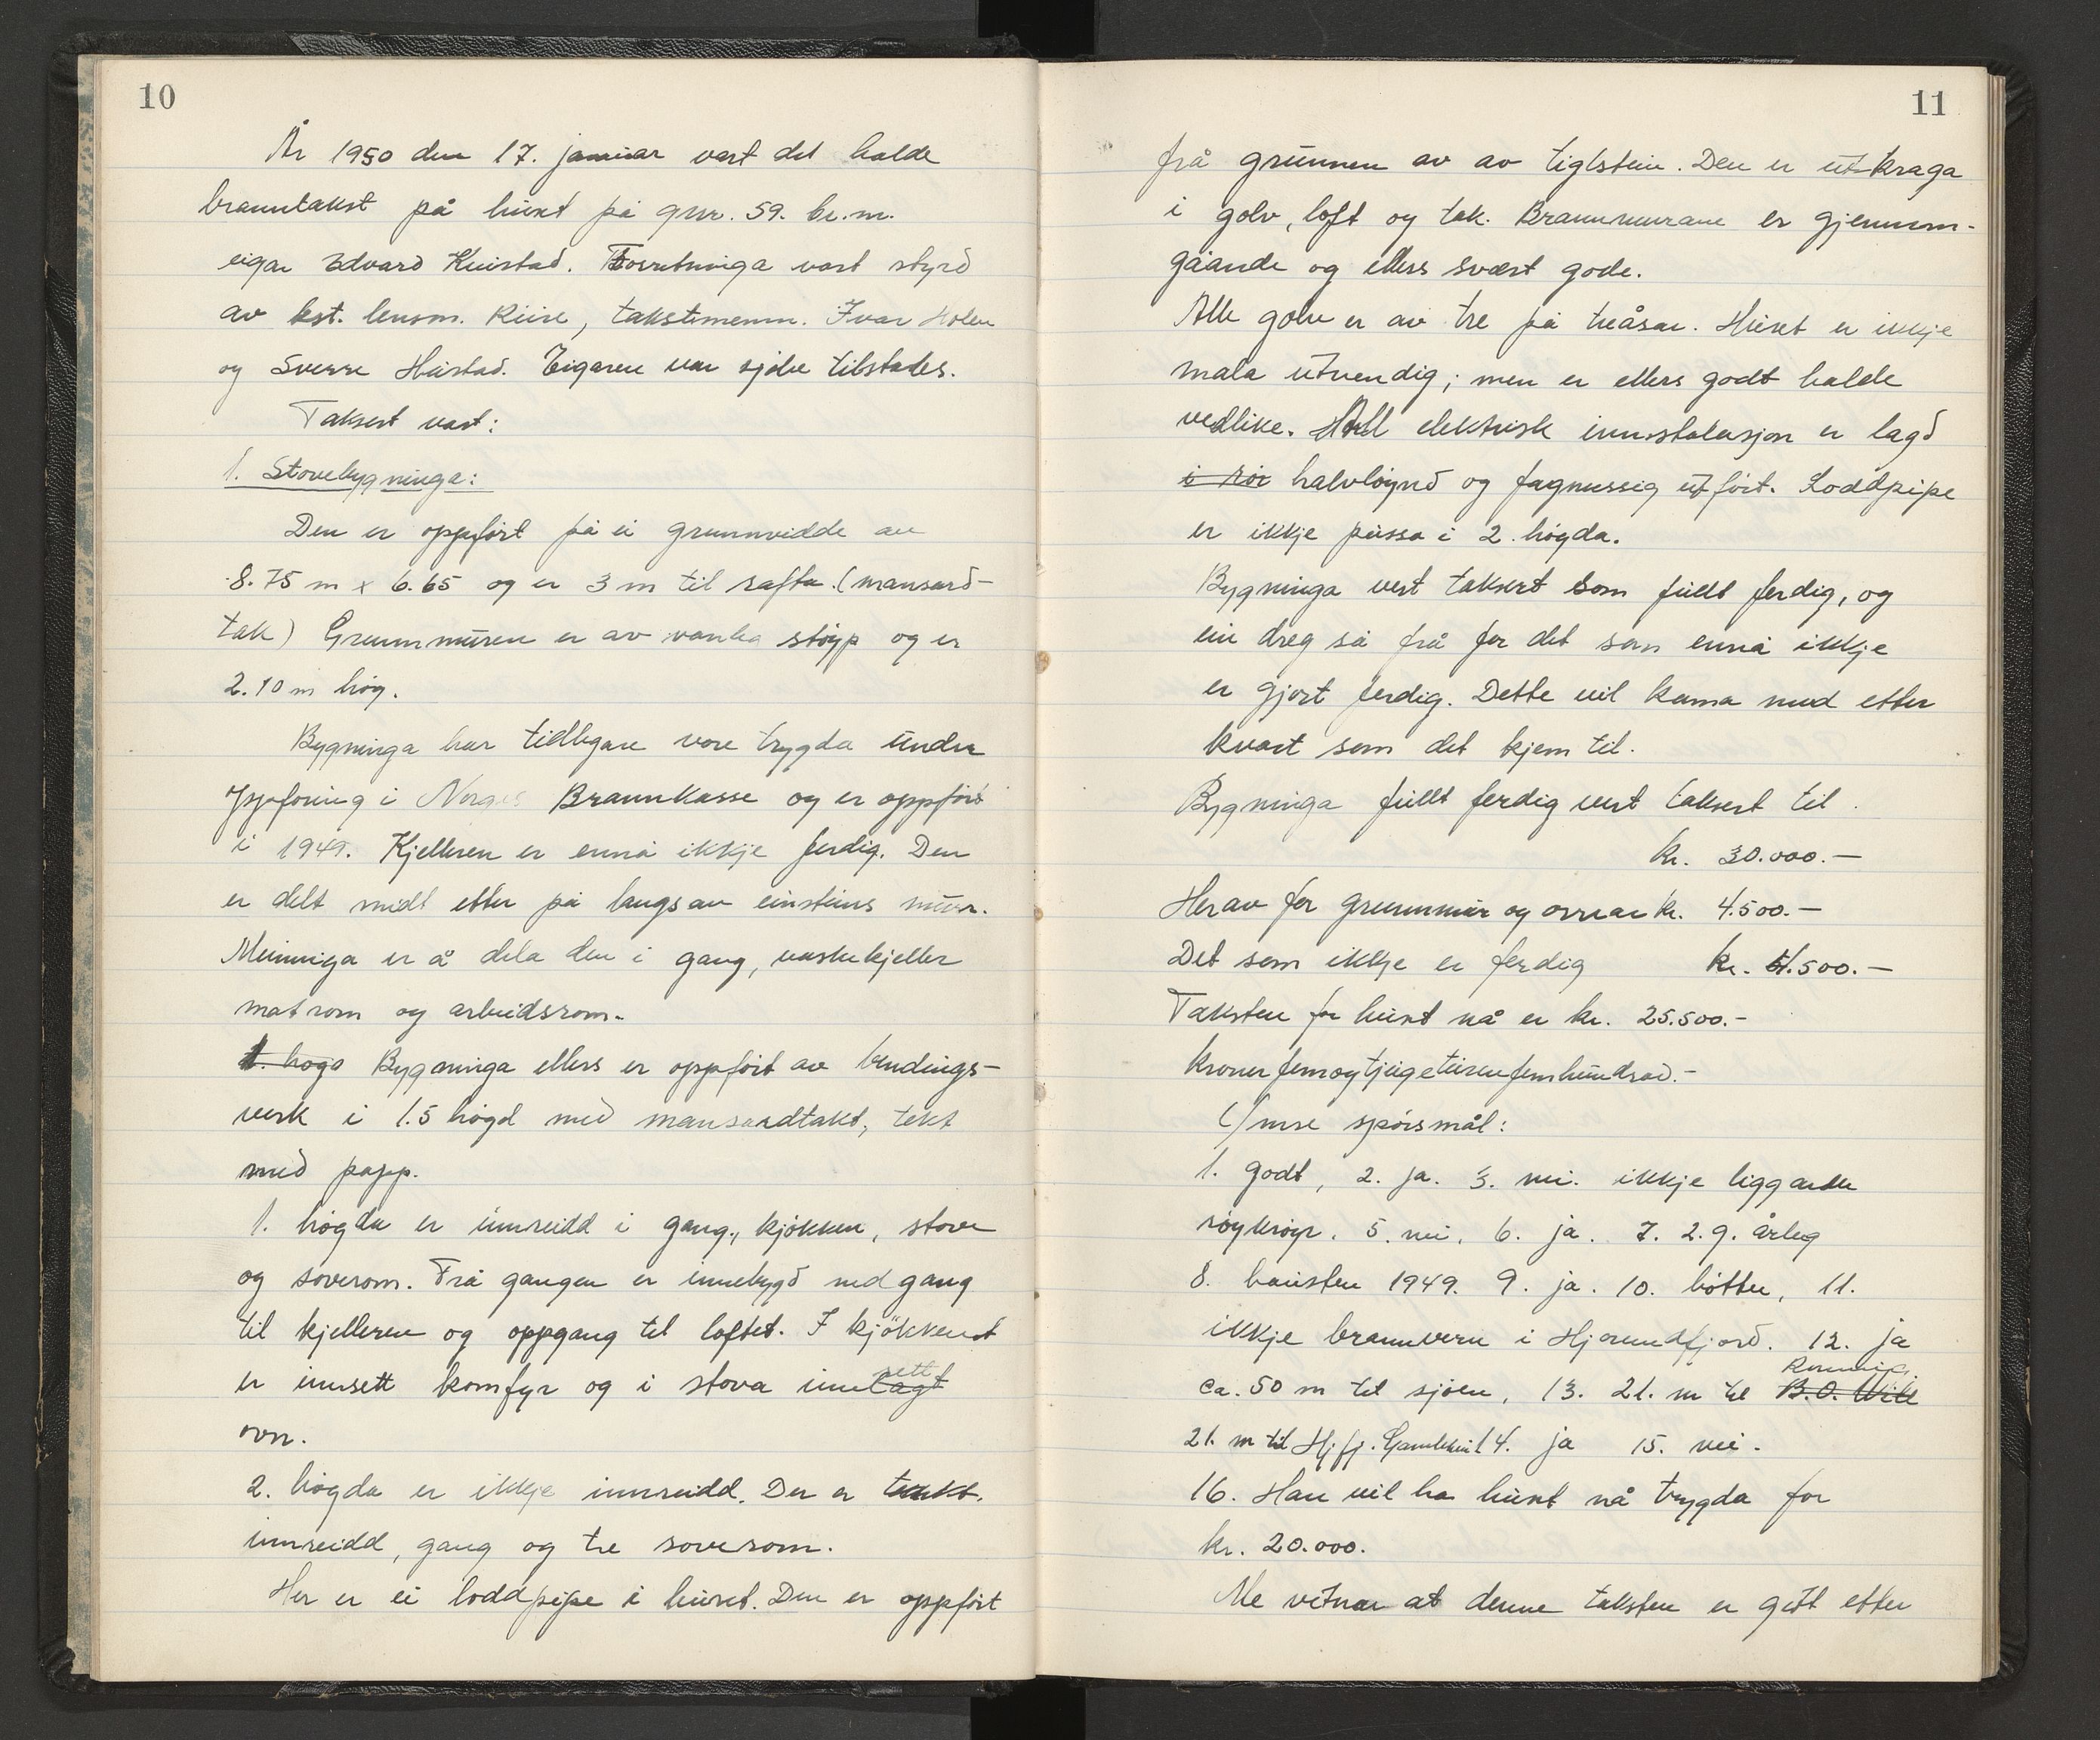 10
År 1950 den 17. januar vart det halde
branntakst på huset på gnr. 59. br.m.
eigar Edvard Huistad. Forretninga vart styrd
av kst. lensm. Riise, takstmenn. Ivar Holen
og Sverre Hustad. Eigaren var sjølv tilstades.
Taksert vart:
1. Stovebygninga:
Den er oppført på ei grunnvidde av
8.75 m x 6.65 og er 3 m til rafta (mansard-
tak) Grunnmuren er av vanleg støyp og er
2.10 m høg.
Bygninga har tidlegare vore trygda under
oppføring i Norges Brannkasse og er oppført
i 1949. Kjelleren er ennå ikkje ferdig. Den
er delt midt etter på langs av einsteins mur.
Meininga er å dela den i gang, vaskekjeller
matrom og arbeidsrom.
1. høgd Bygninga ellers er oppført av bindings-
verk i 1.5 høgd med mansardtakt, tekt
med papp.
1. høgda er innreidd i gang, kjøkken, stove
og soverom. Frå gangen er innebygd nedgang
til kjelleren og oppgang til loftet. I kjøkkenet
er innsett komfyr og i stova innlagt sett
ovn.
2. høgda er ikkje innreidd. Der er tenkt
innreidd, gang og tre soverom.
Her er ei loddpipe i huset. Den er oppført
11
frå grunnen av av tiglstein. Den er utkraga
i golv, loft og tak. Brannmurane er gjennom-
gåande og ellers svært gode.
Alle golv er av tre på treåsar. Huset er ikkje
mala utvendig; men er ellers godt halde
vedlike. All elektrisk innstalasjon er lagd
i rør halvløynd og fagmessig utført. Loddpipe
er ikkje pussa i 2. høgda.
Bygninga vert taksert som fullt ferdig, og
ein dreg så frå for det som ennå ikkje
er gjort ferdig. Dette vil koma med etter
kvart som det kjem til.
Bygninga fullt ferdig vert taksert til
kr. 30.000.—
Herav for grunnmur og omnar kr. 4.500.—
Det som ikkje er ferdig kr. 4.500.—
Taksten for huset nå er kr. 25.500.-
kroner femogtjugetusenfemhundrad.-
Ymse spørsmål:
1. godt, 2. ja. 3. nei. ikkje liggande
røykrøyr. 5. nei. 6. ja. 7. 2.g. årleg
8. hausten 1949. 9. ja. 10. bøtter, 11.
ikkje brannvern i Hjørundfjord. 12. ja
ca. 50 m til sjøen, 13. 21. m til B.O. Wik
21. m til Hj.fj. 14. ja 15. nei.
16. Han vil ha huset nå trygda for
kr. 20.000.
Me vitnar at denne taksten er gitt etter